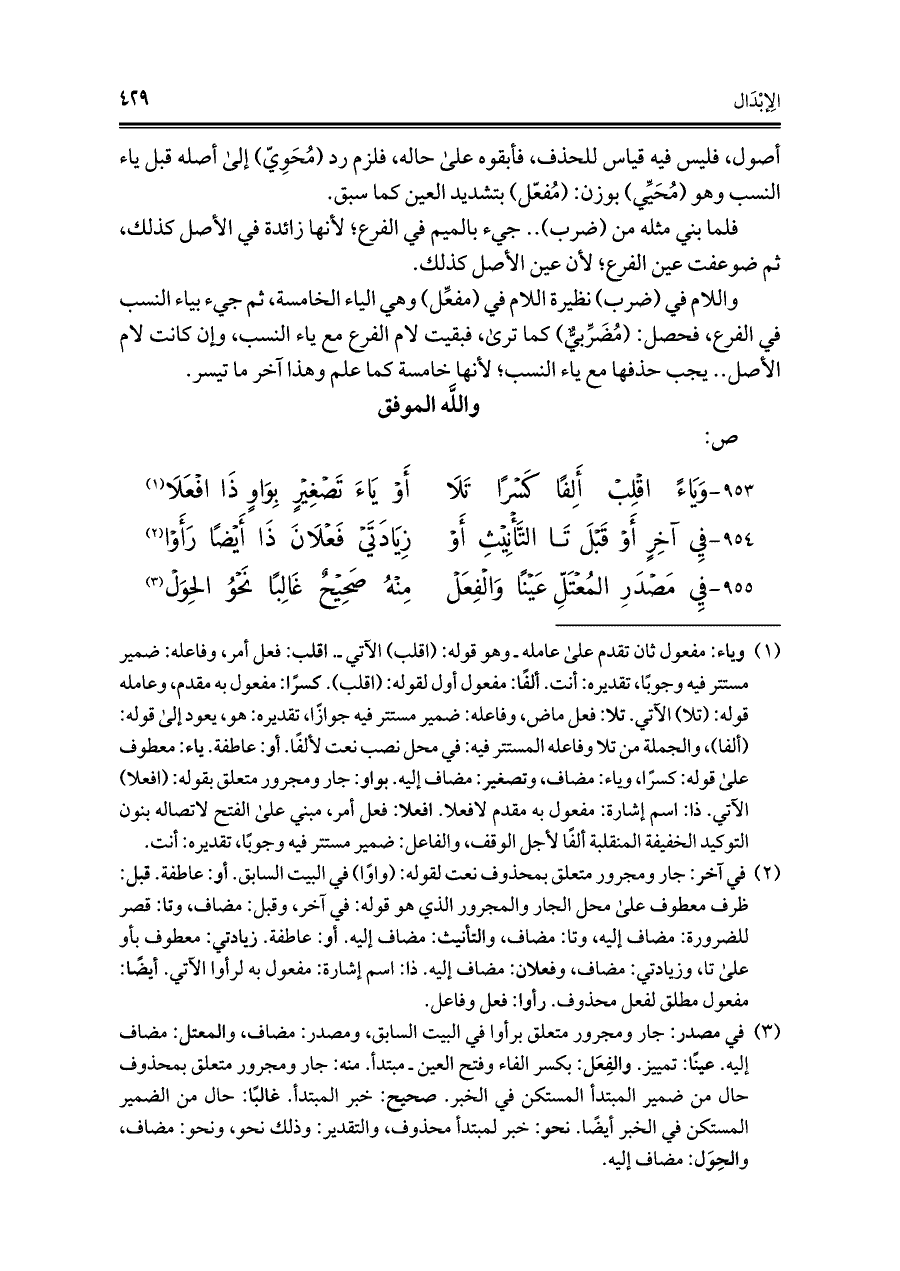 الإِبْدَال ٤٢٩
أصول، فليس فيه قياس للحذف، فأبقوه علىٰ حاله، فلزم رد (مُحَوِيّ) إلىٰ أصله قبل ياء
النسب وهو (مُحَيِّي) بوزن: (مُفعّل) بتشديد العين كما سبق.
فلما بني مثله من (ضرب).. جيء بالميم في الفرع؛ لأنها زائدة في الأصل كذلك،
ثم ضوعفت عين الفرع؛ لأن عين الأصل كذلك.
واللام في (ضرب) نظيرة اللام في (مفعِّل) وهي الياء الخامسة، ثم جيء بياء النسب
في الفرع، فحصل: (مُضَرِّبيٌّ) كما ترىٰ، فبقيت لام الفرع مع ياء النسب، وإن كانت لام
الأصل.. يجب حذفها مع ياء النسب؛ لأنها خامسة كما علم وهذا آخر ما تيسر.
واللَّه الموفق
ص:
٩٥٣- وَيَاءً اقْلِبْ أَلِفًا كَسْرًا تَلَا أَوْ يَاءَ تَصْغِيْرٍ بِوَاوٍ ذَا افْعَلَا(١)
٩٥٤- فِي آخِرٍ أَوْ قَبْلَ تَـا التَّأْنِيْثِ أَوْ زِيَادَتَيْ فَعْلَانَ ذَا أَيْضًا رَأَوْا(٢)
٩٥٥- فِي مَصْدَرِ المُعْتَلِّ عَيْنًا وَالْفِعَلْ مِنْهُ صَحِيْحٌ غَالِبًا نَحْوُ الحِوَلْ(٣)
(١) وياء: مفعول ثان تقدم علىٰ عامله ـ وهو قوله: (اقلب) الآتي ـ. اقلب: فعل أمر، وفاعله: ضمير
مستتر فيه وجوبًا، تقديره: أنت. ألفًا: مفعول أول لقوله: (اقلب). كسرًا: مفعول به مقدم، وعامله
قوله: (تلا) الآتي. تلا: فعل ماض، وفاعله: ضمير مستتر فيه جوازًا، تقديره: هو، يعود إلىٰ قوله:
(ألفا)، والجملة من تلا وفاعله المستتر فيه: في محل نصب نعت لألفًا. أو: عاطفة. ياء: معطوف
علىٰ قوله: كسرًا، وياء: مضاف، وتصغير: مضاف إليه. بواو: جار ومجرور متعلق بقوله: (افعلا)
الآتي. ذا: اسم إشارة: مفعول به مقدم لافعلا. افعلا: فعل أمر، مبني علىٰ الفتح لاتصاله بنون
التوكيد الخفيفة المنقلبة ألفًا لأجل الوقف، والفاعل: ضمير مستتر فيه وجوبًا، تقديره: أنت.
(٢) في آخر: جار ومجرور متعلق بمحذوف نعت لقوله: (واوًا) في البيت السابق. أو: عاطفة. قبل:
ظرف معطوف علىٰ محل الجار والمجرور الذي هو قوله: في آخر، وقبل: مضاف، وتا: قصر
للضرورة: مضاف إليه، وتا: مضاف، والتأنيث: مضاف إليه. أو: عاطفة. زيادتي: معطوف بأو
علىٰ تا، وزيادتي: مضاف، وفعلان: مضاف إليه. ذا: اسم إشارة: مفعول به لرأوا الآتي. أيضًا:
مفعول مطلق لفعل محذوف. رأوا: فعل وفاعل.
(٣) في مصدر: جار ومجرور متعلق برأوا في البيت السابق، ومصدر: مضاف، والمعتل: مضاف
إليه. عينًا: تمييز. والفِعَل: بكسر الفاء وفتح العين ـ مبتدأ. منه: جار ومجرور متعلق بمحذوف
حال من ضمير المبتدأ المستكن في الخبر. صحيح: خبر المبتدأ. غالبًا: حال من الضمير
المستكن في الخبر أيضًا. نحو: خبر لمبتدأ محذوف، والتقدير: وذلك نحو، ونحو: مضاف،
والحِوَل: مضاف إليه.